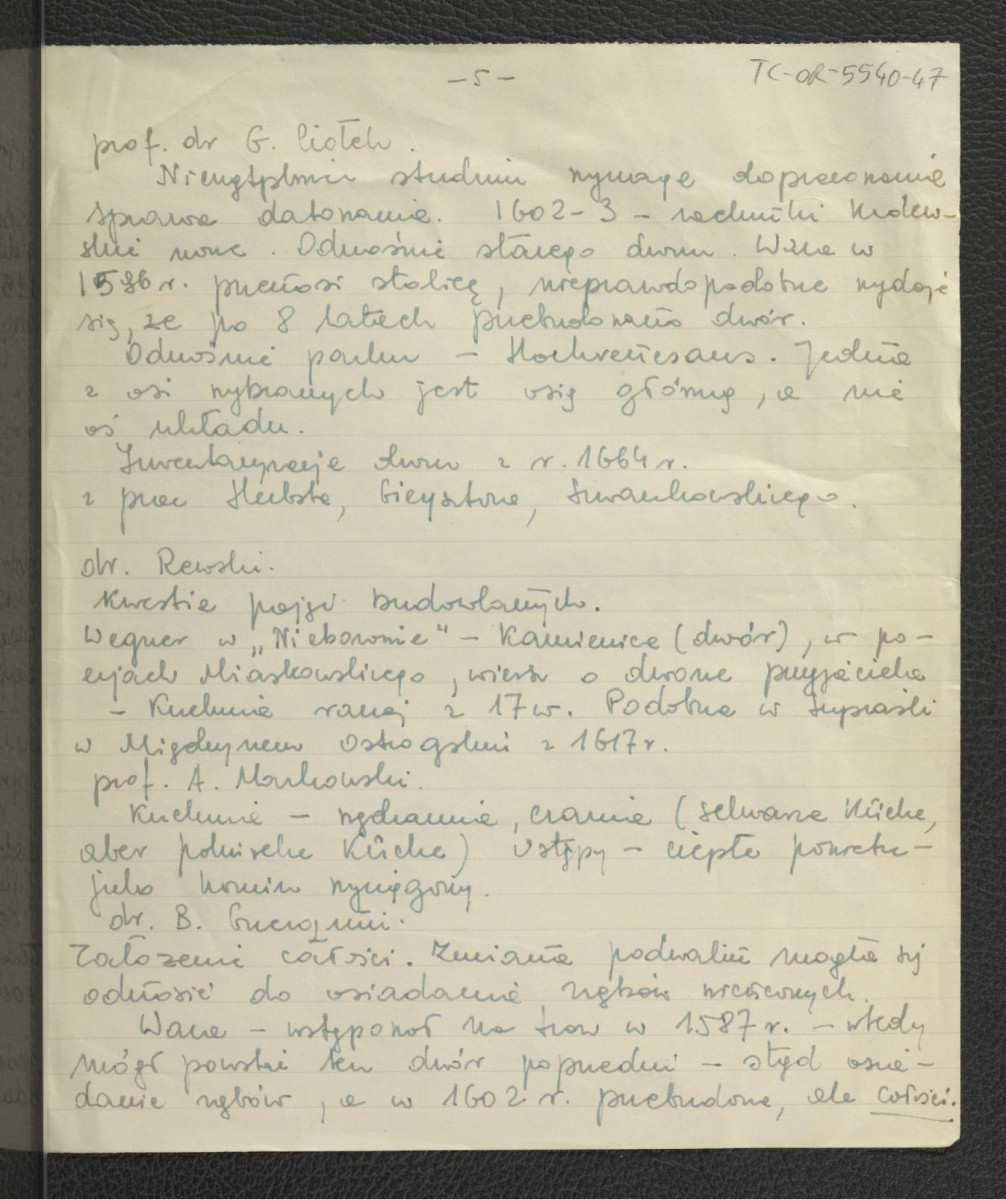 - 5 -
TC-OR-5540-47
prof. dr G. Ciołek.
Niewątpliwie studium wymaga dopracowania
sprawa datowania. 1602-3 – rachunki królew-
skie nowe. Odnośnie starego dworu. Waza w
1596 r. przenosi stolicę, nieprawdopodobne wydaje
się, że po 8 latach przebudowano dwór.
Odnośnie parku – Hochrenesans. Jedna
z osi wybranych jest osią główną, a nie
oś układu.
Inwentaryzacje dworu z r. 1664 r.
z prac Herbsta, Gieysztora, Iwankowskiego.
dr. Rewski.
Kwestia pojęć budowlanych.
Wegner w „Nieborowie" – Kamienica (dwór), w po-
ezjach Miaskowskiego, wiersz o dworze przyjaciela
– Kuchnia raczej z 17 w. Podobna w Supraśli
w Międzyrzeczu Ostrogskim z 1617 r.
prof. A. Markowski.
Kuchnie – wędzarnie, czarnie (schwarze Küche,
aber polnische Küche) Ustępy – ciepłe powietrze –
jako komin wyciągowy.
dr. B. Guerquin.
Założenie całości. Zmiana podwalin mogła się
odnosić do osiadania zrębów nierównych.
Waza – wstępował na tron w 1587 r. – wtedy
mógł powstać ten dwór poprzedni – stąd osia-
danie zrębów, a w 1602 r. przebudowa, ale całości.